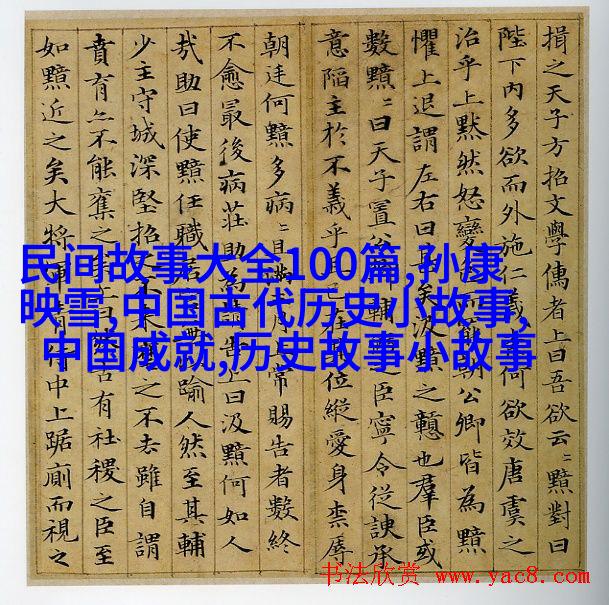 損之天子方招文學儒者上曰吾欲云〻黯對曰
陛下內多欲而外施仁義何欲效唐虞之
治乎上黙然怒變而罷朝公卿皆為黯
懼上退謂左右曰甚矣汲黯之戇也羣臣或
數黯〻曰天子置公輔之臣寧令從諛承
意陷主於不義乎已在位縱愛身柰辱
朝廷何黯多病〻且滿月上常賜告者數終
不愈最後病莊助為請告上曰汲黯何如人
㢤助曰使黯任職居踰人然至其輔
少主守城深堅招不之不去雖自謂
賁育亦不能奪之曰古有社稷之臣至
如黯近之矣大將中上踞廁而視之
民间故事大全100篇,孙康
映雪,中国古代历史小故事,
中国成就,历史故事小故事
书法欣赏 www.yac8.com